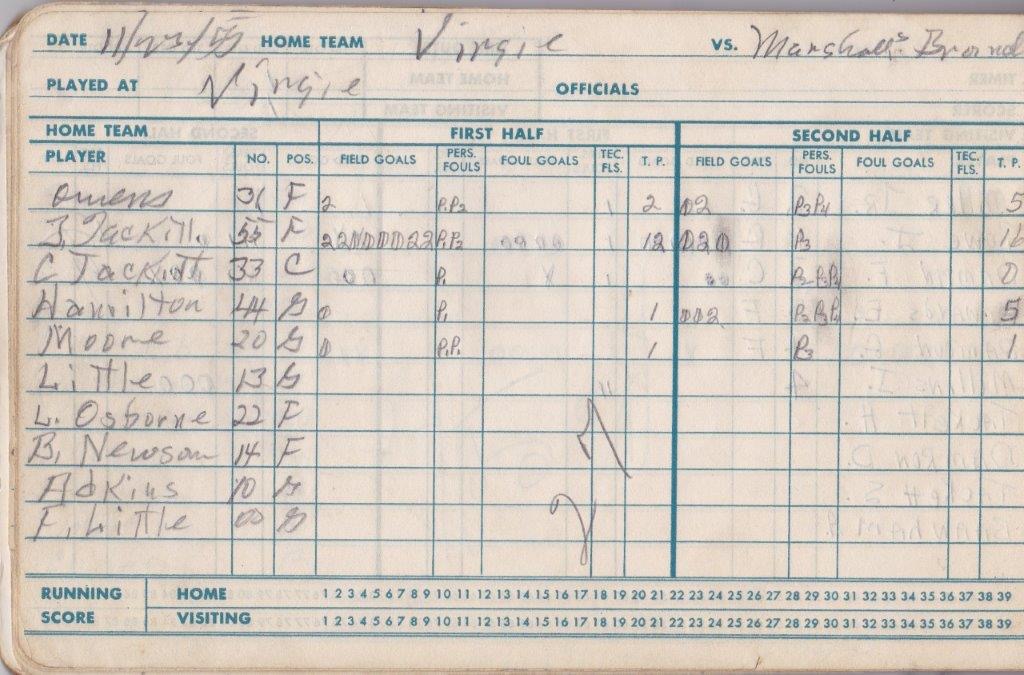 DATE 11/23/55 HOME TEAM Virgie VS. Marshall's Brand
PLAYED AT Virgie OFFICIALS
HOME TEAM FIRST HALF SECOND HALF
PLAYER NO. POS. FIELD GOALS PERS. FOULS FOUL GOALS TEC. FLS. T. P. FIELD GOALS PERS. FOULS FOUL GOALS TEC. FLS. T. P.
Owens 31 F 2 P1P2 2 02 P3P4 5
Tackitt 55 F P1P2 12 020 P3 16
C Tackitt 33 C P1 P2P3P4 0
Hamilton 44 G 0 P1 1 002 P2P3P4 5
Moore 20 G 0 P1P1 1 P3 1
Little 13 G
L. Osborne 22 F
B. Newsom 14 F
Adkins 10 G
F. Little 00 G
RUNNING SCORE
HOME 1 2 3 4 5 6 7 8 9 10 11 12 13 14 15 16 17 18 19 20 21 22 23 24 25 26 27 28 29 30 31 32 33 34 35 36 37 38 39
VISITING 1 2 3 4 5 6 7 8 9 10 11 12 13 14 15 16 17 18 19 20 21 22 23 24 25 26 27 28 29 30 31 32 33 34 35 36 37 38 39